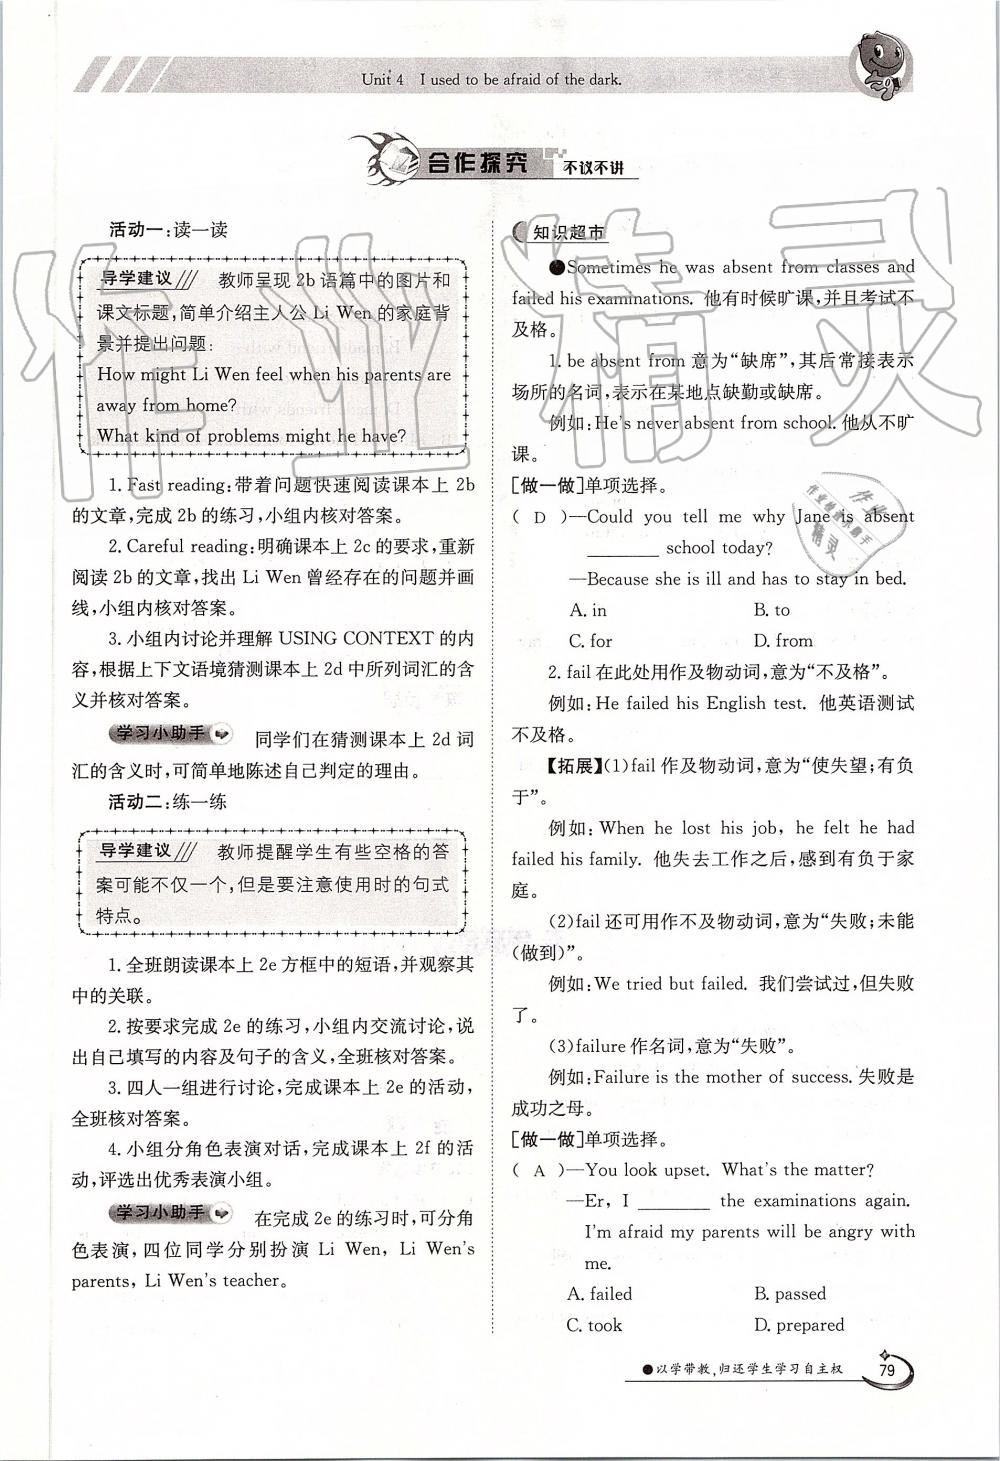 Unit 4 I used to be afraid of the dark.
合作探究 不议不讲
活动一:读一读
导学建议/// 教师呈现2b语篇中的图片和
课文标题,简单介绍主人公Li Wen的家庭背
景并提出问题:
How might Li Wen feel when his parents are
away from home?
What kind of problems might he have?
1. Fast reading:带着问题快速阅读课本上2b
的文章,完成2b的练习,小组内核对答案。
2. Careful reading:明确课本上2c的要求,重新
阅读2b的文章,找出Li Wen曾经存在的问题并画
线,小组内核对答案。
3. 小组内讨论并理解 USING CONTEXT的内
容,根据上下文语境猜测课本上2d中所列词汇的含
义并核对答案。
学习小助手 同学们在猜测课本上2d词
汇的含义时,可简单地陈述自己判定的理由。
活动二:练一练
导学建议/// 教师提醒学生有些空格的答
案可能不仅一个,但是要注意使用时的句式
特点。
1. 全班朗读课本上2e方框中的短语,并观察其
中的关联。
2. 按要求完成2e的练习,小组内交流讨论,说
出自己填写的内容及句子的含义,全班核对答案。
3. 四人一组进行讨论,完成课本上2e的活动,
全班核对答案。
4. 小组分角色表演对话,完成课本上2f的活
动,评选出优秀表演小组。
学习小助手 在完成2e的练习时,可分角
色表演,四位同学分别扮演 Li Wen, Li Wen's
parents, Li Wen's teacher。
知识超市
●Sometimes he was absent from classes and
failed his examinations. 他有时候旷课,并且考试不
及格。
1. be absent from 意为“缺席”,其后常接表示
场所的名词,表示在某地点缺勤或缺席。
例如:He's never absent from school. 他从不旷
课。
[做一做]单项选择。
( D )—Could you tell me why Jane is absent
________ school today?
—Because she is ill and has to stay in bed.
A. in B. to
C. for D. from
2. fail在此处用作及物动词,意为“不及格”。
例如:He failed his English test. 他英语测试
不及格。
【拓展】(1)fail作及物动词,意为“使失望;有负
于”。
例如:When he lost his job, he felt he had
failed his family. 他失去工作之后,感到有负于家
庭。
(2)fail还可用作不及物动词,意为“失败;未能
(做到)”。
例如:We tried but failed. 我们尝试过,但失败
了。
(3)failure作名词,意为“失败”。
例如:Failure is the mother of success. 失败是
成功之母。
[做一做]单项选择。
( A )—You look upset. What's the matter?
—Er, I ________ the examinations again.
I'm afraid my parents will be angry with
me.
A. failed B. passed
C. took D. prepared
●以学带教,归还学生学习自主权 79
作业精灵